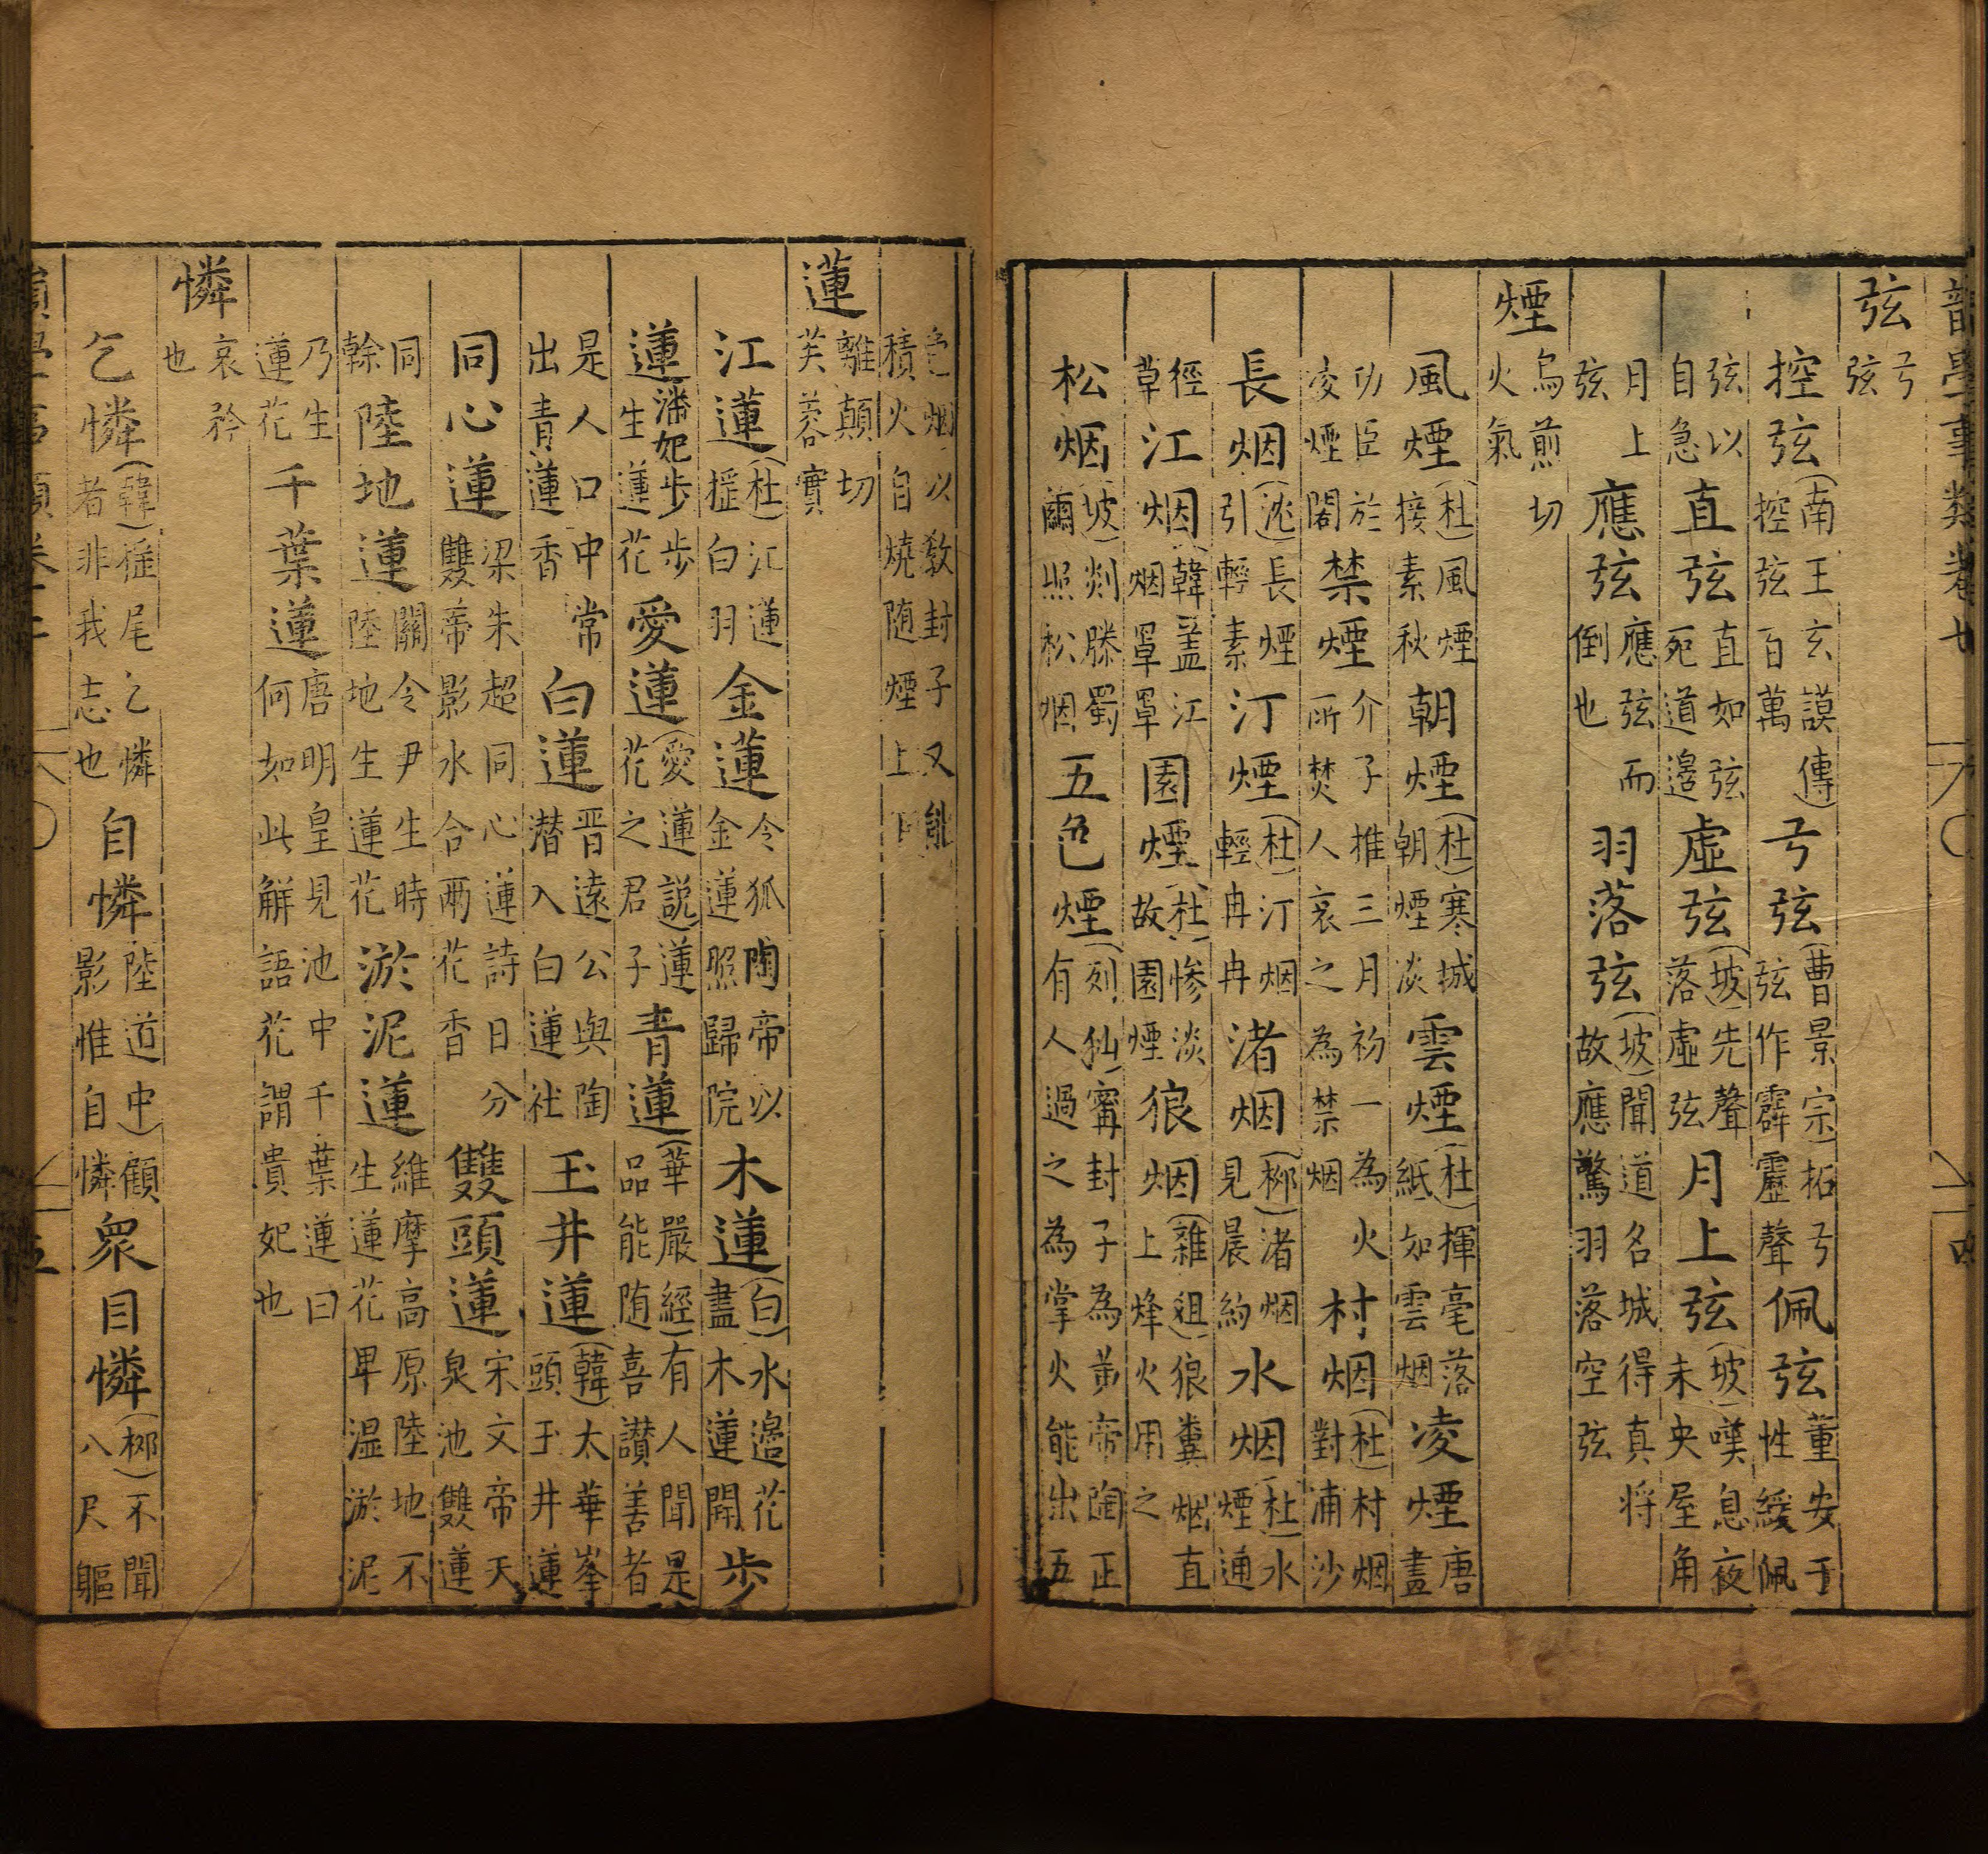 韻學事類卷七 四
弦 弓弦
控弦(南王玄謨傳)控弦百萬 弓弦(曹景宗)拓弓弦作霹靂聲 佩弦董安于性緩佩
弦以自急 直弦直如弦死道邊 虛弦(坡)先聲落虛弦 月上弦(坡)嘆息夜未央屋角
月上弦 應弦應弦而倒也 羽落弦(坡)聞道名城得真将故應驚羽落空弦
煙 烏煎切火氣
風煙(杜)風煙接素秋 朝煙(杜)寒城朝煙淡 雲煙(杜)揮毫落紙如雲烟 凌煙唐畫
功臣於凌煙閣 禁煙介子推三月初一為火所焚人哀之為禁烟 村烟(杜)村烟對浦沙
長烟(沈)長煙引輕素 汀煙(杜)汀烟輕冉冉 渚烟(柳)渚烟見晨約 水烟(杜)水煙通
徑草 江烟(韓)盖江烟罩罩 園煙(杜)慘淡故園煙 狼烟(雜俎)狼糞烟直上烽火用之
松烟(坡)剡滕蜀繭照松烟 五色煙(列仙)甯封子為黃帝陶正有人過之為掌火能出五
色烟以教封子又能積火自燒随煙上下
蓮 離顛切芙蓉實
江蓮(杜)江蓮揺白羽 金蓮令狐陶帝以金蓮照歸院 木蓮(白)水邊花盡木蓮開 步
蓮潘妃步步生蓮花 愛蓮(愛蓮說)蓮花之君子 青蓮(華嚴經)有人聞是品能随喜讃善者
是人口中常出青蓮香 白蓮晋遠公與陶潜入白蓮社 玉井蓮(韓)太華峯頭玉井蓮
同心蓮梁朱超同心蓮詩日分雙帝影水合兩花香 雙頭蓮宋文帝天泉池雙蓮
同幹 陸地蓮關令尹生時陸地生蓮花 淤泥蓮維摩高原陸地不生蓮花卑湿淤泥
乃生蓮花 千葉蓮唐明皇見池中千葉蓮曰何如此解語花謂貴妃也
憐 哀矜也
乞憐(韓)揺尾乞憐者非我志也 自憐陸道中)顧影惟自憐 衆目憐(柳)不聞八尺軀